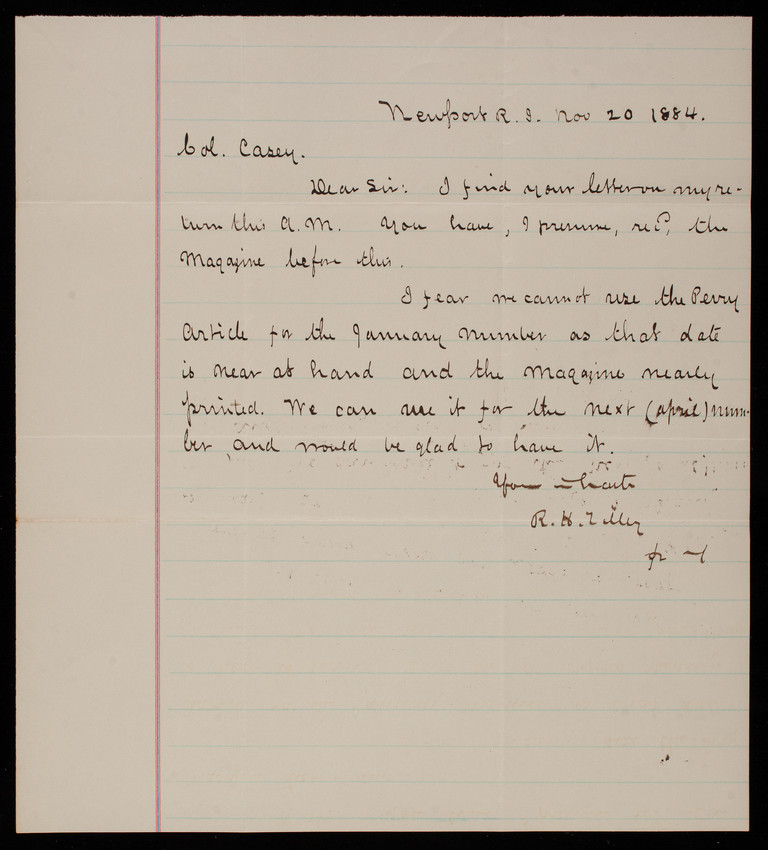 Newport R. I. Nov 20 1884.
Col. Casey.
Dear Sir: I find your letter on my re-
turn this A.M. You have, I presume, recd, the
Magazine before this.
I fear we cannot use the Perry
Article for the January number as that date
is near at hand and the Magazine nearly
printed. We can use it for the next (april) num-
ber, and would be glad to have it.
Yours in haste
R. H. Tilley